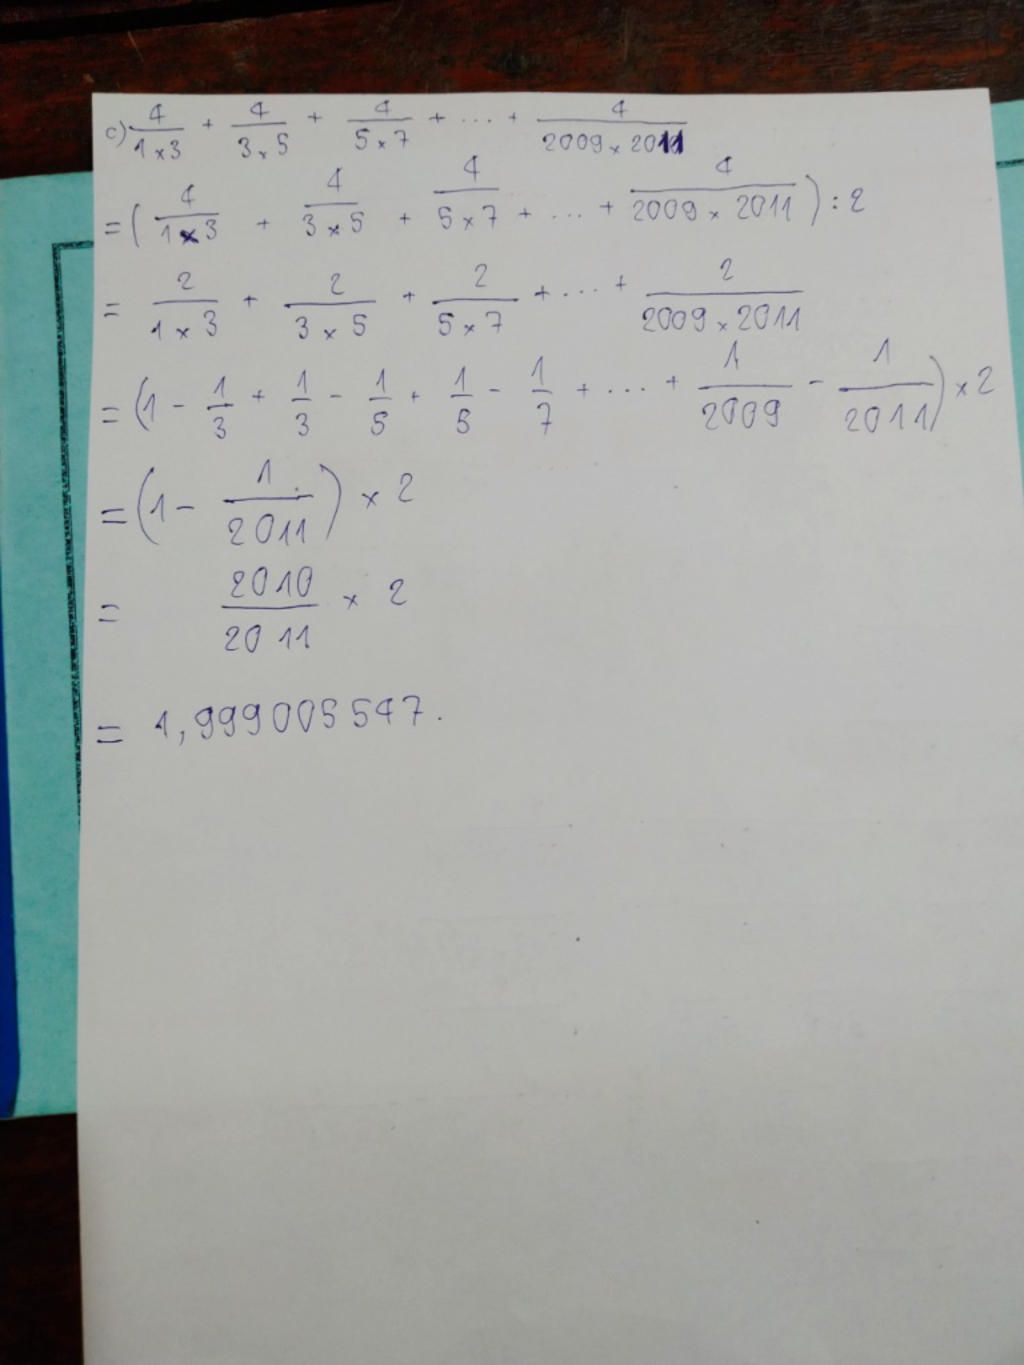 c) 4/(1×3) + 4/(3×5) + 4/(5×7) + ... + 4/(2009×2011)
= ( 4/(1×3) + 4/(3×5) + 4/(5×7) + ... + 4/(2009×2011) ) : 2
= 2/(1×3) + 2/(3×5) + 2/(5×7) + ... + 2/(2009×2011)
= (1 - 1/3 + 1/3 - 1/5 + 1/5 - 1/7 + ... + 1/2009 - 1/2011) × 2
= (1 - 1/2011) × 2
= 2010/2011 × 2
= 1,999005547.